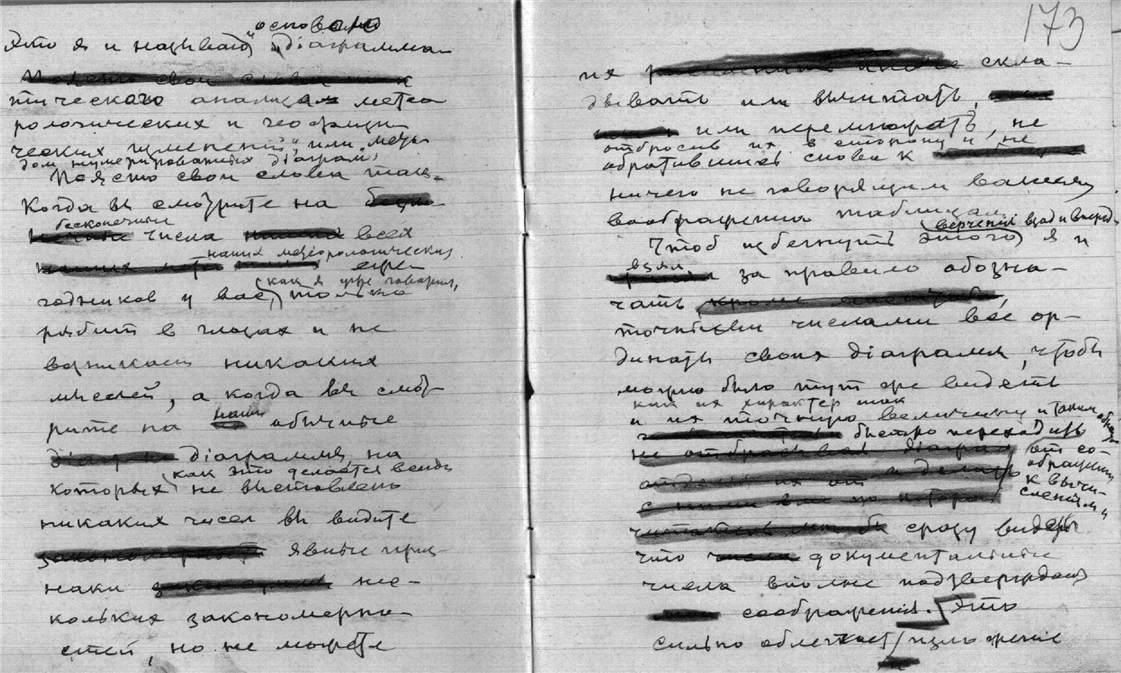 основою
Это я и называю "діаграмма-
тического анализа метео
рологических и геофизи
ческих изменений" или мето
дом нумерированных діаграм.
Поясню свои слова так.
Когда вы смотрите на
бесконечные
числа всех
наших метеорологических
еже
(как я уже говорил,
годников у вас только
рябит в глазах и не
возникает никаких
мыслей, а когда вы смот
рите на наши обычные
діаграммы, на
(как это делается всегда
которых не выставлено
никаких чисел вы видите
явные приз-
наки не-
кольких закономерно-
стей, но не можете
173
их скла-
дывать или вычитать,
или перемножать, не
отбросив их в сторону и не
обратившись снова к
ничего не говорящим вашему
воображению таблицам.
верчения взад и вперед
Чтоб избегнуть этого я и
взял за правило обозна-
чать
точными числами все ор-
динаты своих діаграмм, чтобы
можно было тут же видеть
как их характер так
и их точную величину и таким образом
быстро переходить
от со-
ображений
к вычи-
слениям и
сразу видеть
что документальные
числа вполне подтверждают
соображения. Это
сильно облегчает изложение